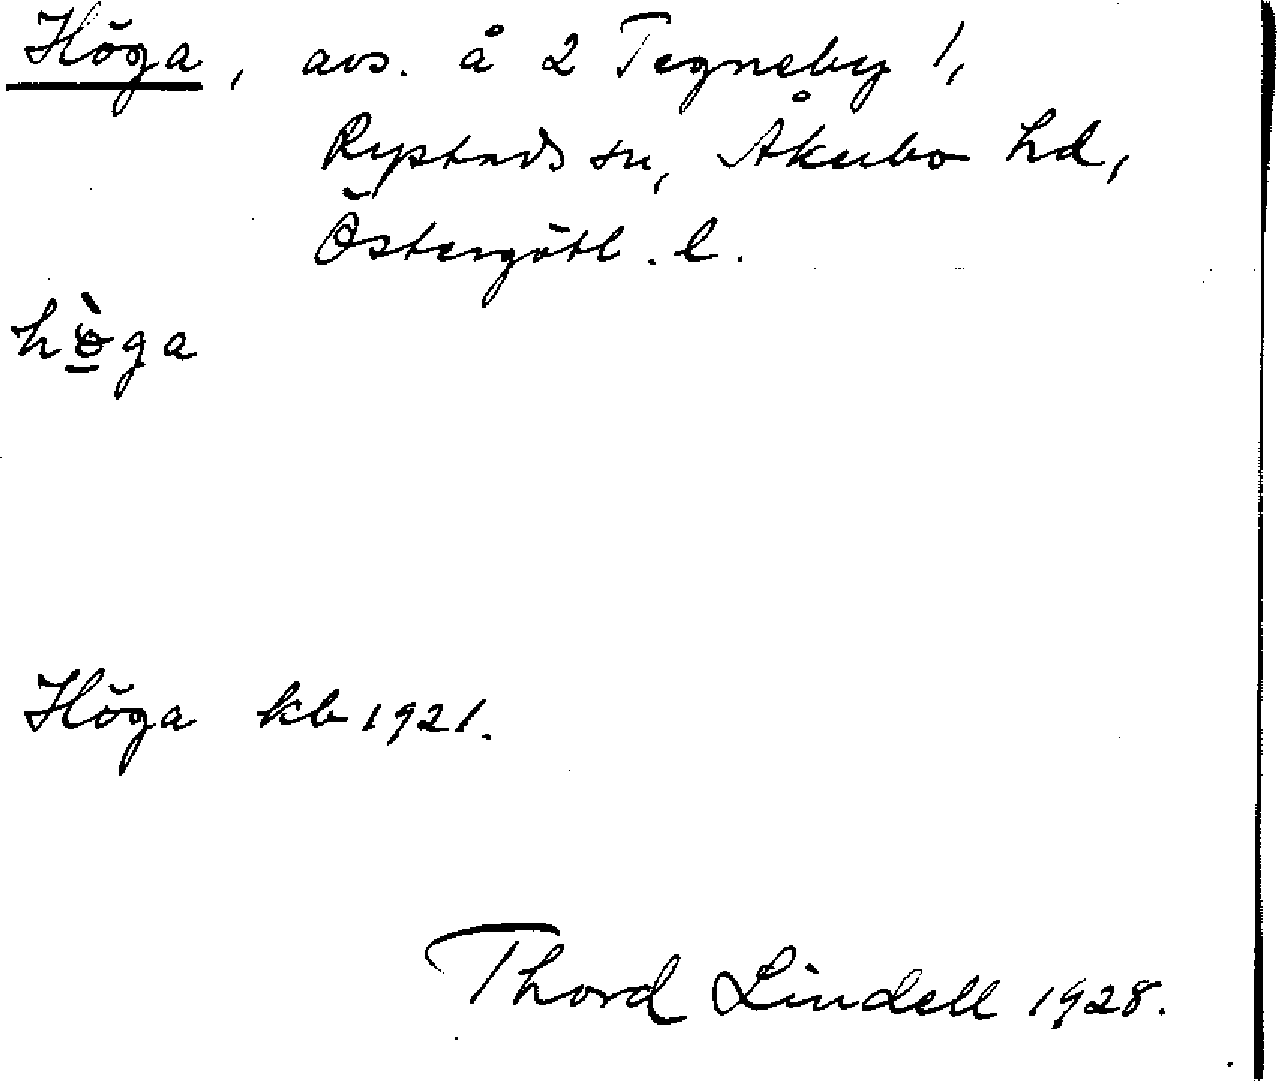 Höga, avs. å 2 Tegneby 1,
Rystads sn, Åkerbo hd,
Östergötl. l.
hö̀ga
Höga kb 1921.
Thord Lindell 1928.